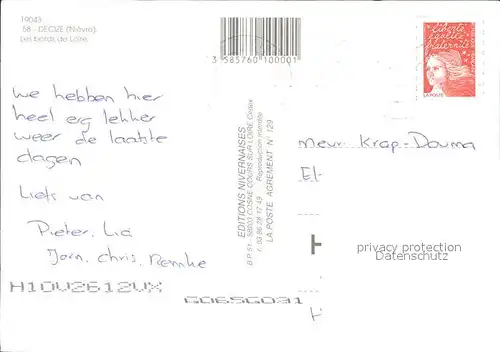 19043
58 - DECIZE (Nièvre)
Les bords de Loire
3 585760 100001
liberté
égalité
fraternité
LA POSTE
we hebben hier
heel erg lekker
weer de laatste
dagen
Liefs van
Pieter. Lia
Jorn. Chris. Remke
EDITIONS NIVERNAISES
B.P 51 - 58203 COSNE COURS SUR LOIRE Cedex
Reproduction interdite
LA POSTE AGREMENT N° 129
Mevr. Krap-Douma
El
H
privacy protection
Datenschutz
H10V2612VX